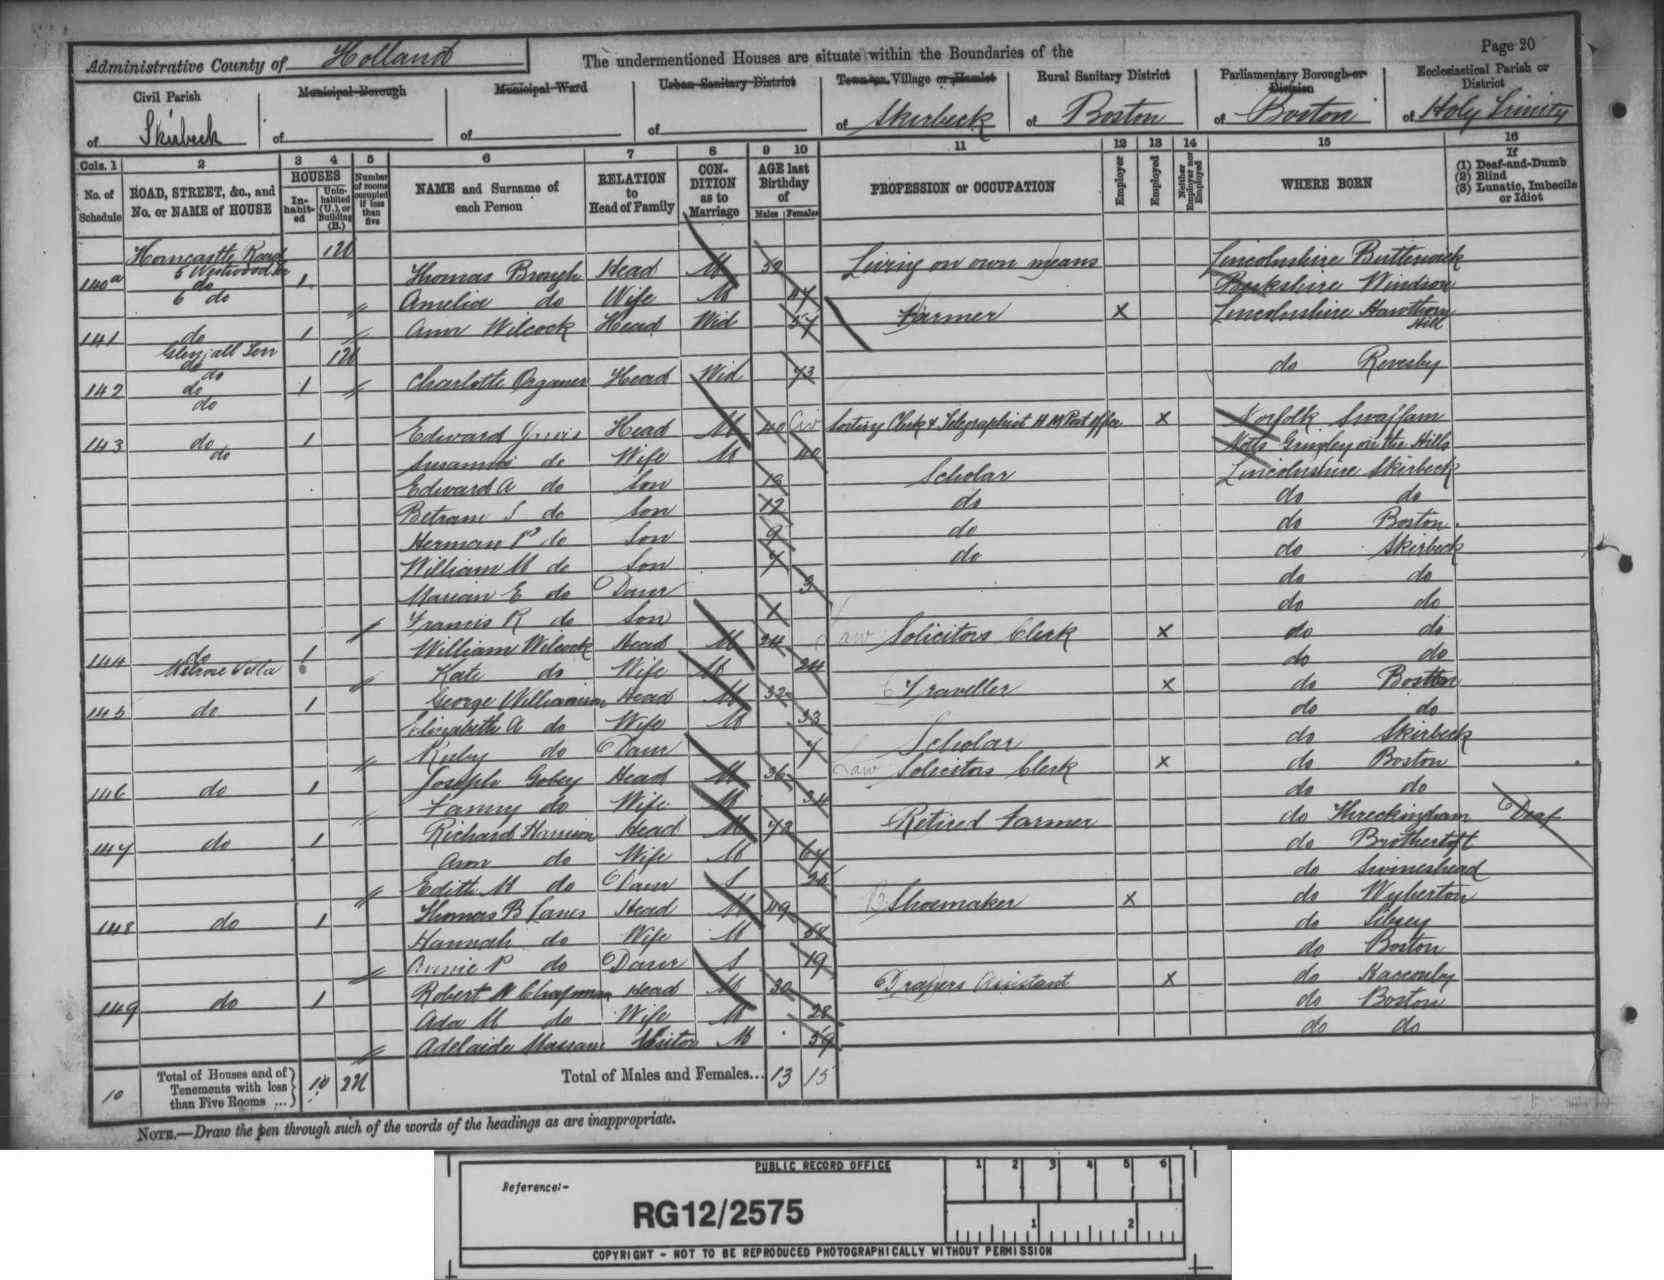 Page 20
Administrative County of Holland
The undermentioned Houses are situate within the Boundaries of the
Civil Parish of Skirbeck
Municipal Borough of
Municipal Ward of
Urban Sanitary District of
Town or Village or Hamlet of Skirbeck
Rural Sanitary District of Boston
Parliamentary Borough or Division of Boston
Ecclesiastical Parish or District of Holy Trinity
Cols. 1 2 3 4 5 6 7 8 9 10 11 12 13 14 15 16
No. of Schedule
ROAD, STREET, &c., and No. or NAME of HOUSE
HOUSES
Inhabited
Uninhabited (U.), or Building (B.)
Number of rooms occupied if less than five
NAME and Surname of each Person
RELATION to Head of Family
CONDITION as to Marriage
AGE last Birthday of
Males Females
PROFESSION or OCCUPATION
Employer
Employed
Neither Employer nor Employed
WHERE BORN
If (1) Deaf-and-Dumb (2) Blind (3) Lunatic, Imbecile or Idiot
Horncastle Road
140a 1 Thomas Brough Head M 52 Living on own means Lincolnshire Butterwick
6 do Amelia do Wife M 47 Berkshire Windsor
141 do 1 Ann Wilcock Head Wid 57 Farmer X Lincolnshire Hawthorn Hill
142 do 1 Charlotte Organer Head Wid 73 do Revesby
143 do 1 Edward Jarvis Head M 40 Sorting Clerk & Telegraphist H M Post Office X Norfolk Swaffam
Susannah do Wife M 40 Notts Gringley on the Hills
Edward A do Son 13 Scholar Lincolnshire Skirbeck
Betram S do Son 12 do do do
Herman P do Son 9 do do Boston
William M do Son 7 do do Skirbeck
Marian E do Daur 3 do do
Francis R do Son X do do
144 do 1 William Wilcock Head M 24 Law Solicitors Clerk X do do
Melrose Villa Kate do Wife M 24 do do
145 do 1 George Williamson Head M 32 Traveller X do Boston
Elizabeth A do Wife M 33 do do
Ruby do Daur 7 Scholar do Skirbeck
146 do 1 Joseph Gobey Head M 36 Law Solicitors Clerk X do Boston
Fanny do Wife M 34 do do
147 do 1 Richard Harrison Head M 73 Retired Farmer do Threckingham Deaf
Ann do Wife M 67 do Brothertoft
Edith M do Daur S 26 do Swineshead
148 do 1 Thomas B Lanes Head M 49 Shoemaker X do Wyberton
Hannah do Wife M do Sibsey
Annie P do Daur S 19 do Boston
149 do 1 Robert W Chapman Head M 30 Drapers Assistant X do Haconby
Ada M do Wife M 28 do Boston
Adelaide Visitor M 59 do do
10
Total of Houses and of Tenements with less than Five Rooms ... 10 2U
Total of Males and Females... 13 15
NOTE.—Draw the pen through such of the words of the headings as are inappropriate.
PUBLIC RECORD OFFICE
1 2 3 4 5 6
Reference:-
RG12/2575
1 2
COPYRIGHT - NOT TO BE REPRODUCED PHOTOGRAPHICALLY WITHOUT PERMISSION